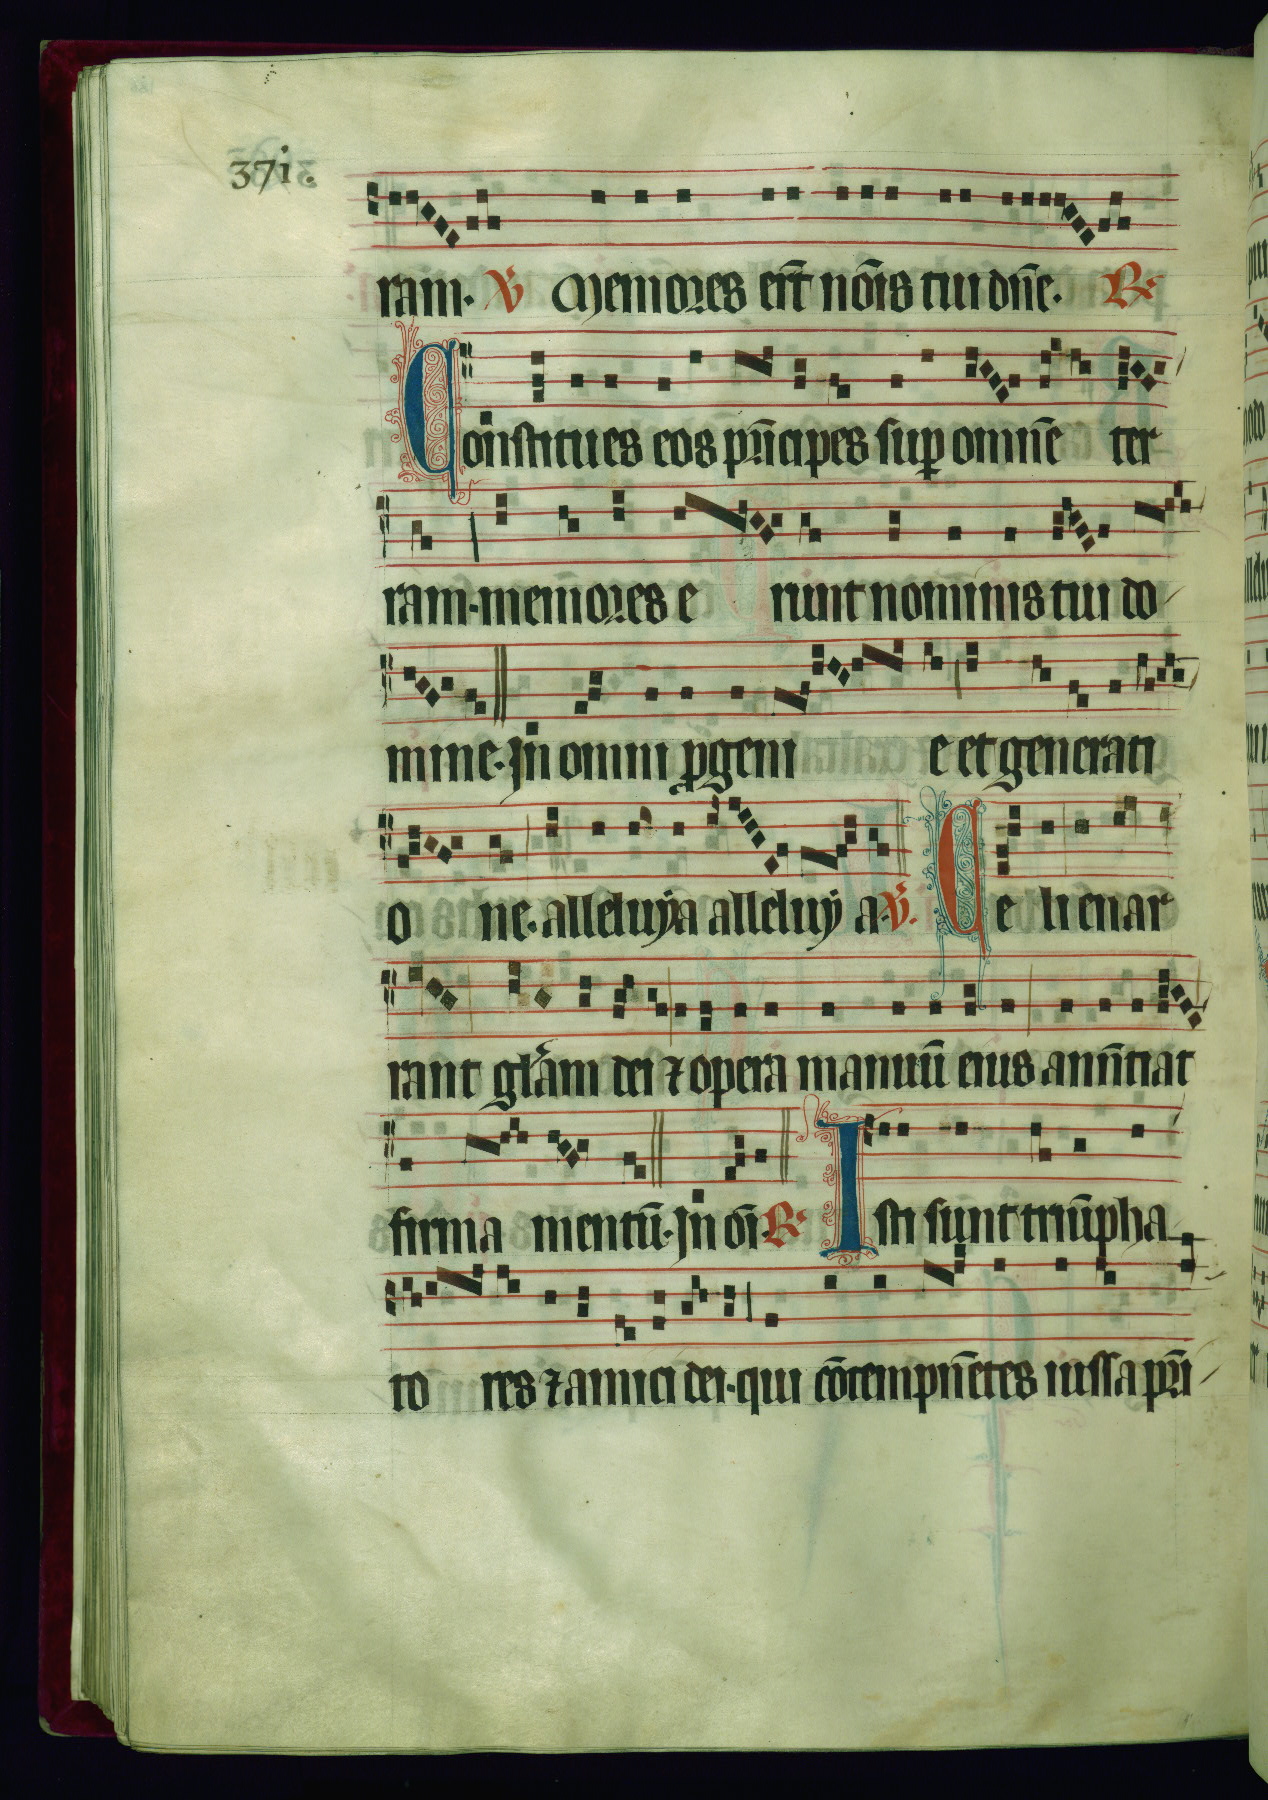 371.
ram. ℣ Memores er̄t nōis tui dn̄e. ℟
Constitues eos pn̄cipes suꝑ omnē ter
ram. memores e runt nominis tui do
mine. Jn omni ꝓgeni e et generati
o ne. alleluya alleluy a. ℣. Ce li enar
rant gl̄am dei ⁊ opera manuū eius anūtiat
firma mentū. Jn oī ℟ Isti sunt triūpha
to res ⁊ amici dei. qui cōtempnētes iussa pn̄